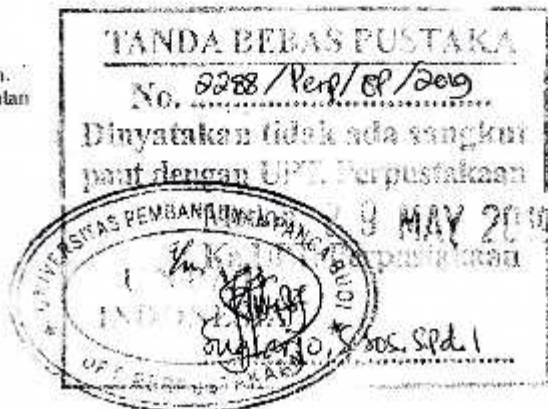 TANDA BEBAS PUSTAKA
No. 2288/Perp/BP/2019
Dinyatakan tidak ada sangkut
paut dengan UPT. Perpustakaan
29 MAY 2019
Ka. Perpustakaan
UNIVERSITAS PEMBANGUNAN PANCA BUDI
INDONESIA
Sugiarjo, S.Sos. S.Pd.I
UPT. PERPUSTAKAAN